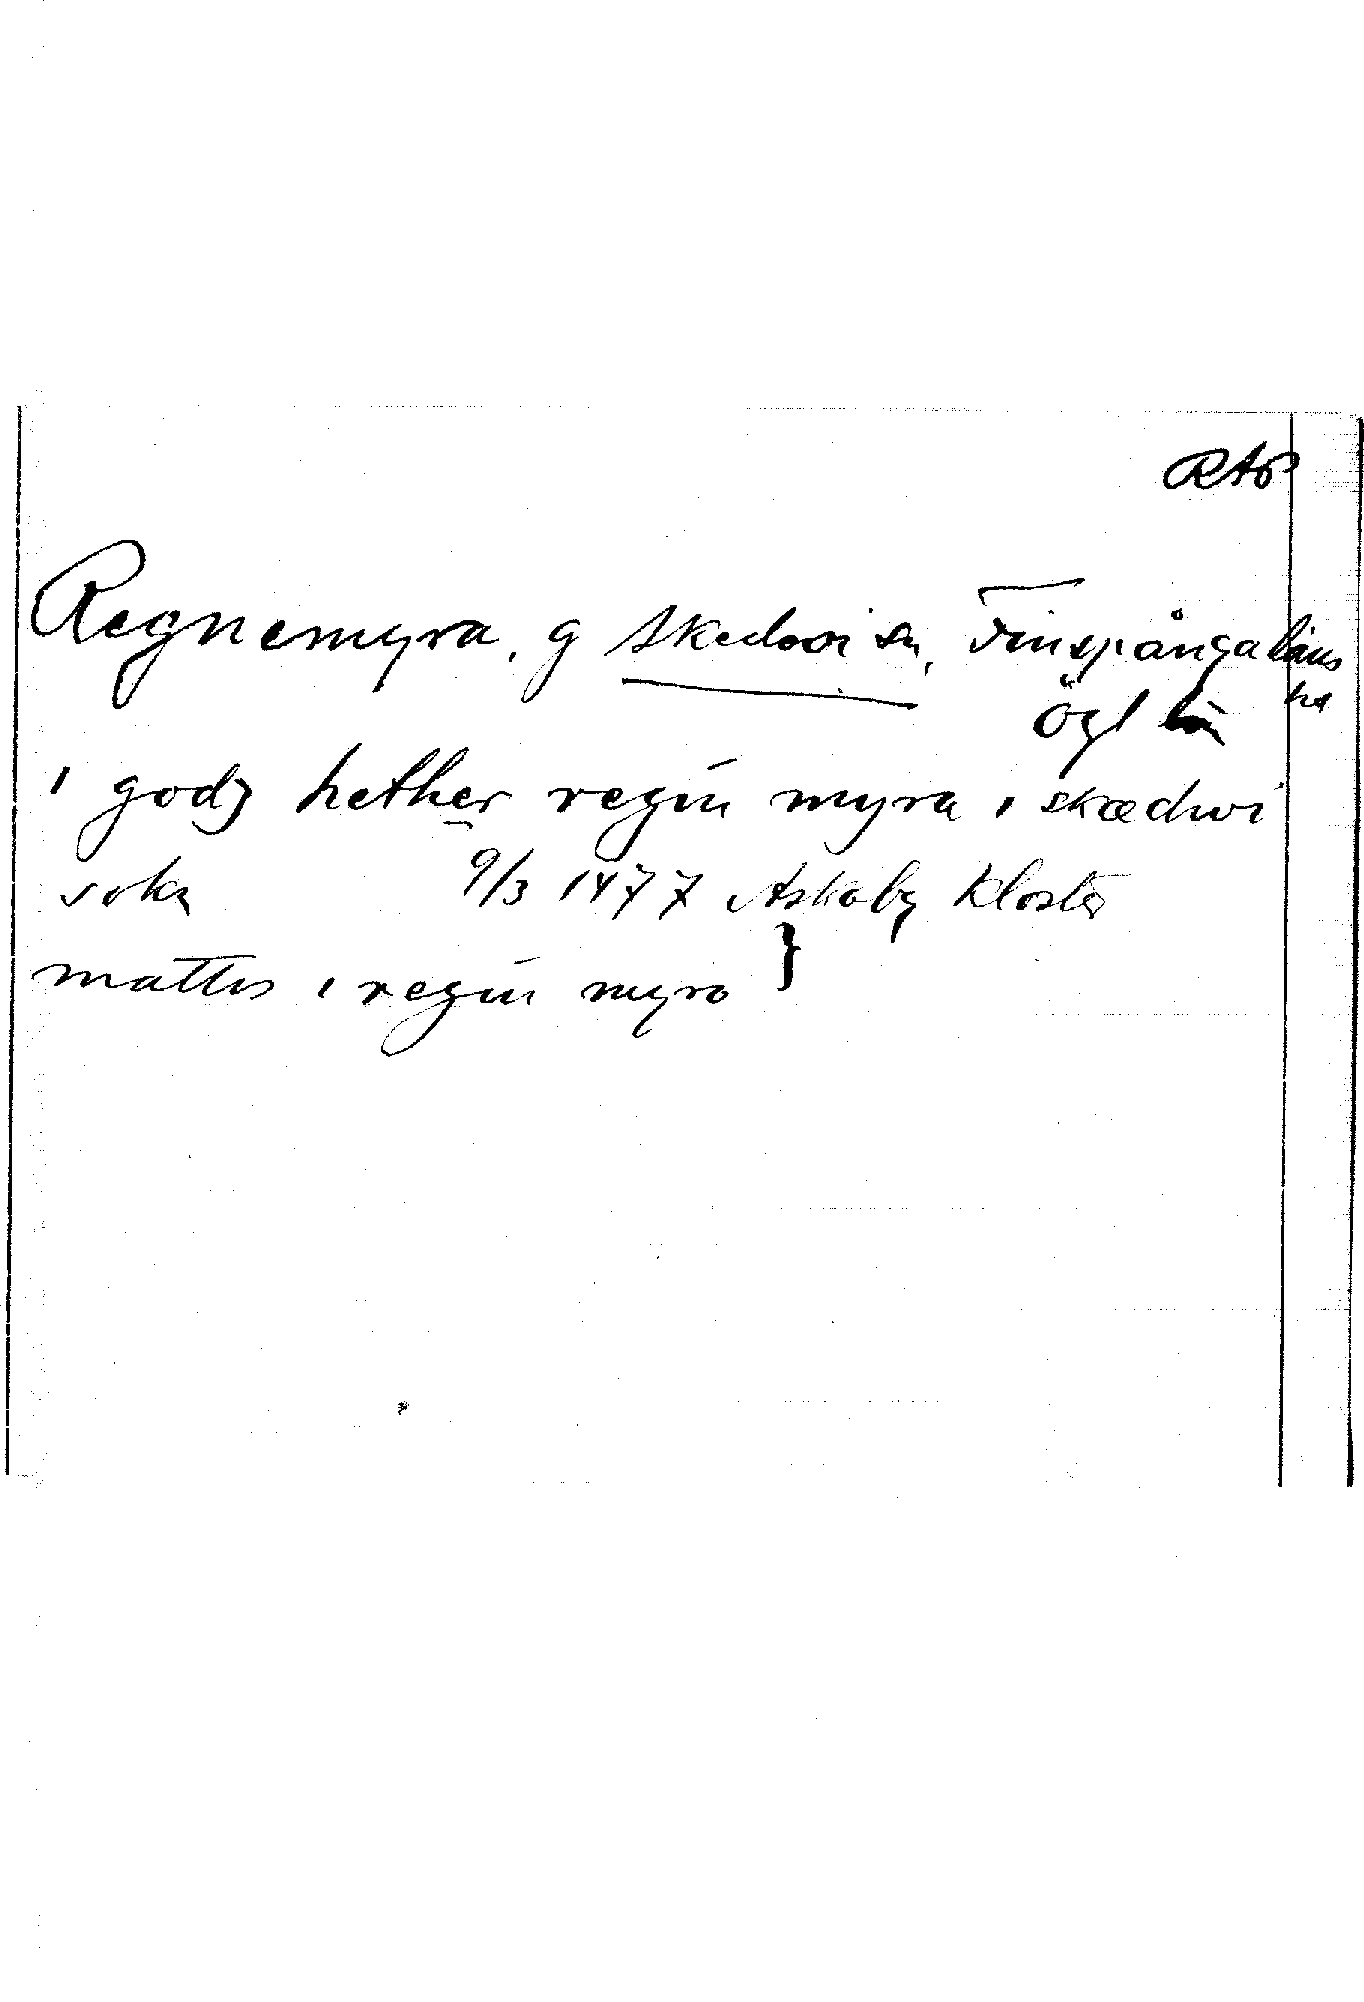 RAp
Regnemyra, g Skedevi sn, Finspånga läns
hd
Ögl län
i godz hether regin myra i skædwi
sokn 9/3 1477 Askaby Kloster
mattis i regin myro }